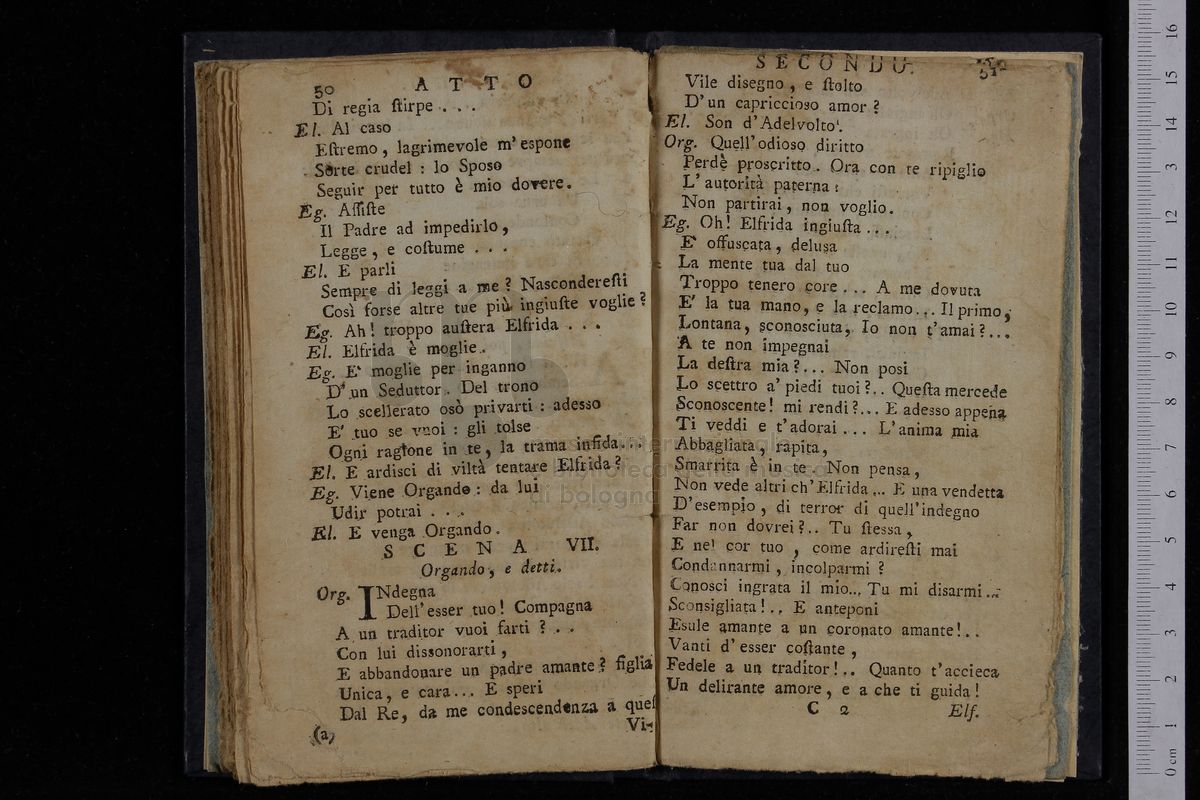 50 ATTO
Di regia ſtirpe . . .
El. Al caso
Eſtremo , lagrimevole m' espone
Sorte crudel : lo Sposo
Seguir per tutto è mio dovere.
Eg. Aſſiſte
Il Padre ad impedirlo ,
Legge , e coſtume . . .
El. E parli
Sempre di leggi a me ? Nasconderesti
Così forse altre tue più ingiuſte voglie ?
Eg. Ah ! troppo auſtera Elfrida . . .
El. Elfrida è moglie .
Eg. E' moglie per inganno
D' un Seduttor . Del trono
Lo scellerato osò privarti : adesso
E' tuo se vuoi : gli tolse
Ogni ragione in te , la trama infida...
El. E ardisci di viltà tentare Elfrida ?
Eg. Viene Orgando : da lui
Udir potrai . . .
El. E venga Orgando .
SCENA VII.
Orgando , e detti .
Org. INdegna
Dell' esser tuo ! Compagna
A un traditor vuoi farti ? . .
Con lui dissonorarti ,
E abbandonare un padre amante ? figlia
Unica , e cara ... E speri
Dal Re , da me condescendenza a queſ
(a) Vi-
SECONDO. 51
Vile disegno , e ſtolto
D' un capriccioso amor ?
El. Son d' Adelvolto .
Org. Quell' odioso diritto
Perdè proscritto . Ora con te ripiglio
L' autorità paterna :
Non partirai , non voglio .
Eg. Oh ! Elfrida ingiuſta . . .
E' offuscata , delusa
La mente tua dal tuo
Troppo tenero core ... A me dovuta
E' la tua mano , e la reclamo ... Il primo ,
Lontana , sconosciuta , Io non t' amai ? ...
A te non impegnai
La deſtra mia ? ... Non posi
Lo scettro a' piedi tuoi ? .. Queſta mercede
Sconoscente ! mi rendi ? ... E adesso appena
Ti veddi e t' adorai ... L' anima mia
Abbagliata , rapita ,
Smarrita è in te . Non pensa ,
Non vede altri ch' Elfrida ... E una vendetta
D' esempio , di terror di quell' indegno
Far non dovrei ? .. Tu ſtessa ,
E nel cor tuo , come ardireſti mai
Condannarmi , incolparmi ?
Conosci ingrata il mio ... Tu mi disarmi ...
Sconsigliata ! .. E anteponi
Esule amante a un coronato amante ! ..
Vanti d' esser coſtante ,
Fedele a un traditor ! .. Quanto t' accieca
Un delirante amore , e a che ti guida !
C 2 Elf.